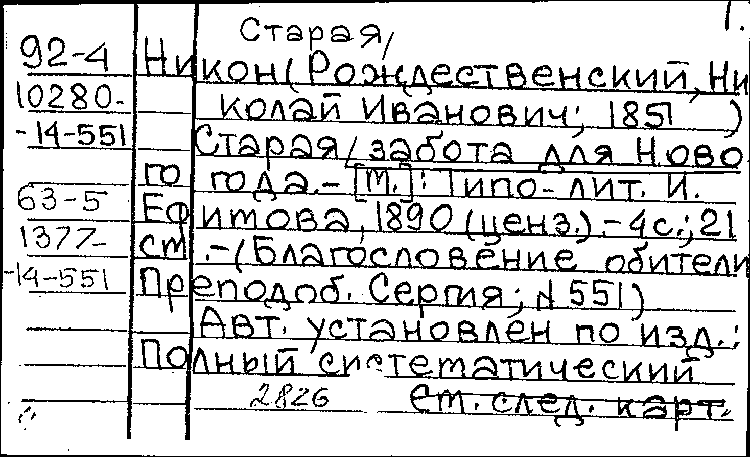 1.
Старая,
92-4 Никон (Рождественский, Ни
10280- колай Иванович; 1851 )
-14-551 Старая, забота для Ново
го года.-[М.]: Типо-лит. И.
63-5 Ефимова, 1890 (ценз.).-4с.; 21
1377- см.-(Благословение обители
-14-551 Преподоб. Сергия; N 551)
Авт. установлен по изд.:
Полный систематический
2826 См. след. карт.